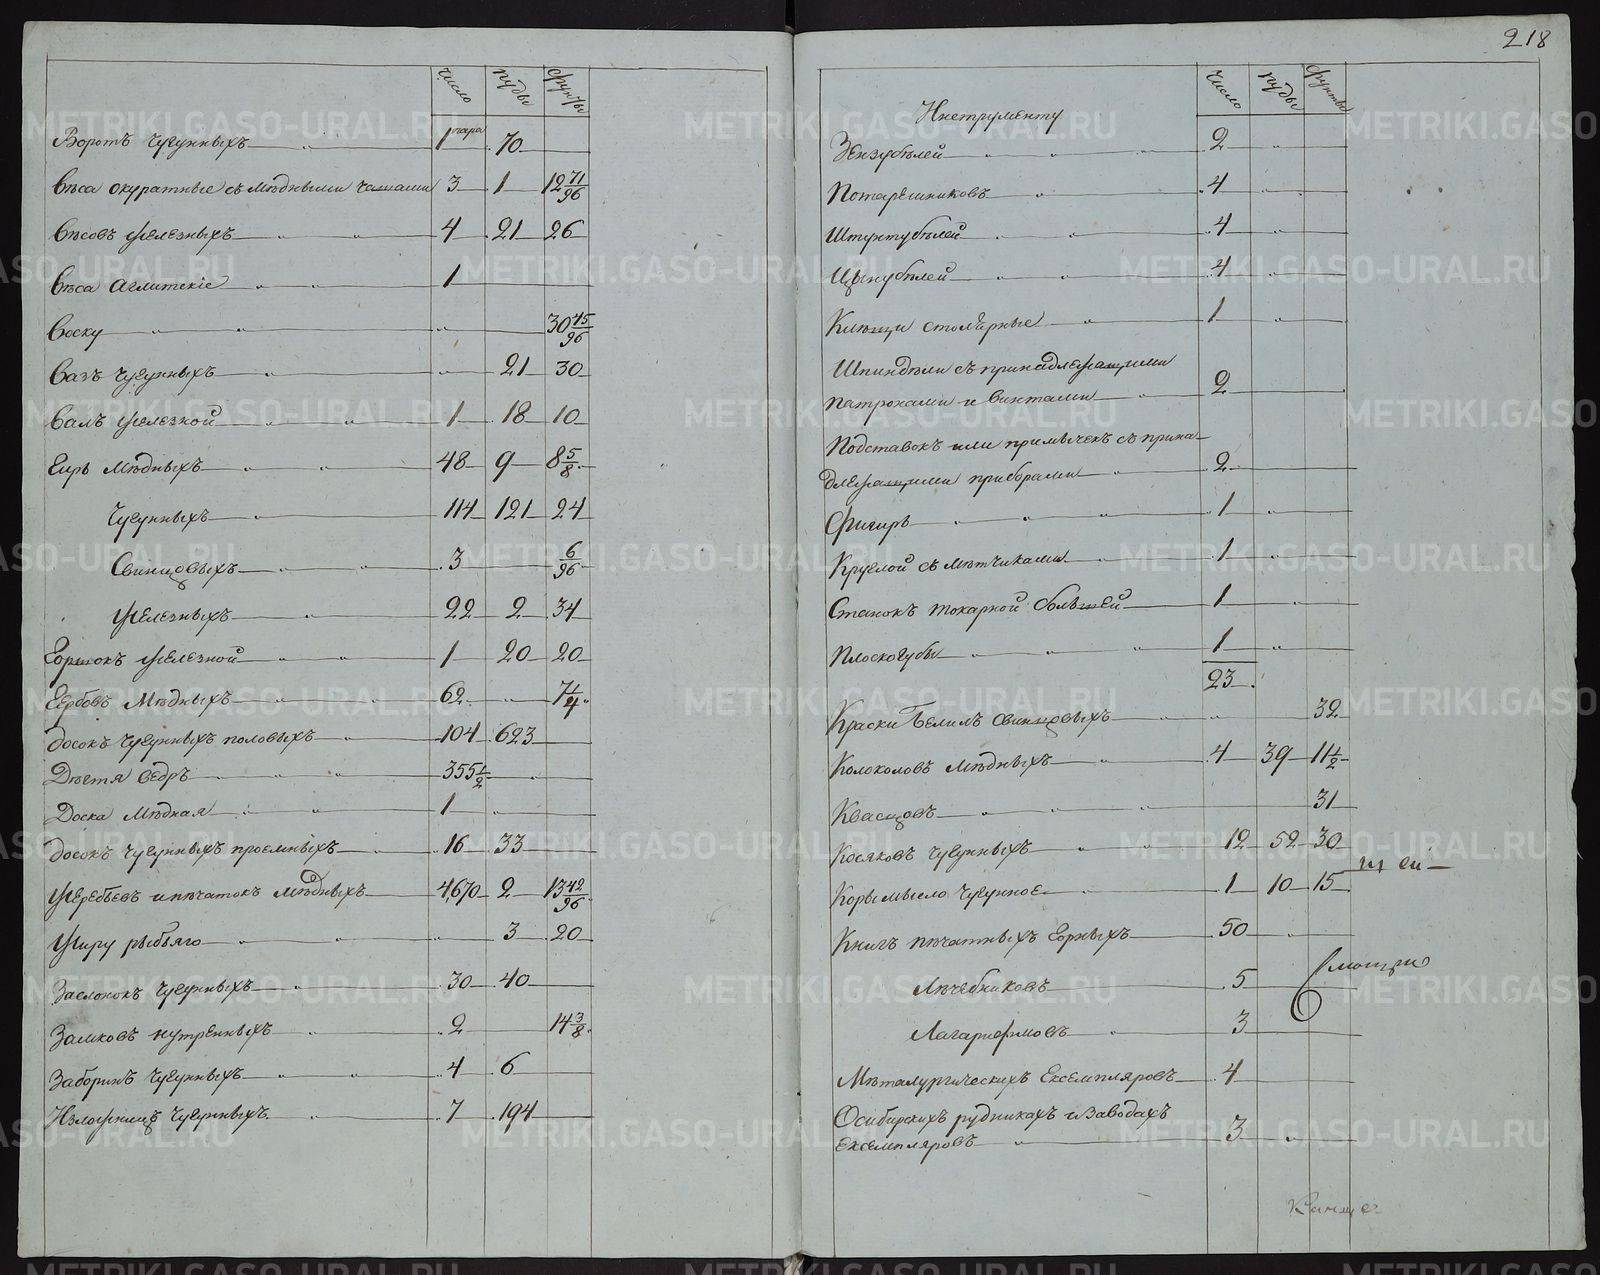 число пуды фунты
Воротъ чугунныхъ 1 пара 70
Вѣса окуратные съ мѣдными чашами 3 1 12 71/96
Вѣсовъ желѣзныхъ 4 21 26
Вѣса Аглитскіе 1
Воску 30 45/96
Вазъ чугунныхъ 21 30
Валъ желѣзной 1 18 10
Гирь мѣдныхъ 48 9 8 5/8
Чугунныхъ 114 121 24
Свинцовыхъ 3 6/96
Желѣзныхъ 22 2 34
Горшокъ желѣзной 1 20 20
Гербовъ мѣдныхъ 62 7 1/4
Досокъ чугунныхъ половыхъ 104 623
Дѣгтя ведръ 355 1/2
Доска мѣдная 1
Досокъ чугунныхъ проемныхъ 16 33
Жеребьевъ и пѣчатокъ мѣдныхъ 4,670 2 13 42/96
Жиру рыбьяго 3 20
Заслонокъ чугунныхъ 30 40
Замковъ нутренныхъ 2 14 3/8
Заборинъ чугунныхъ 4 6
Изложницъ чугунныхъ 7 194
218
число пуды фунты
Инструменту
Зензубѣлей 2
Потарешниковъ 4
Штунтубѣлей 4
Цынубѣлей 4
Клѣщи столѣрные 1
Шпиндѣли съ принадлежащими
патронами и винтами 2
Подставокъ или примычекъ съ прина-
длежащими приборами 2
Фигиръ 1
Круглой съ мѣтчиками 1
Станокъ токарной большей 1
Плоскогубы 1
23
Краски Бѣлилъ свинцовыхъ 32
Колоколовъ мѣдныхъ 4 39 11 1/2
Квасцовъ 31
Косяковъ чугунныхъ 12 52 30
Корымысло чугунное 1 10 15
Книгъ пѣчатныхъ Горныхъ 50
Лѣчебниковъ 5
Лагарифмовъ 3
Мѣталургическихъ Ексемпляровъ 4
О сибирскихъ рудникахъ и Заводахъ
Ексемпляровъ 3
METRIKI.GASO-URAL.RU